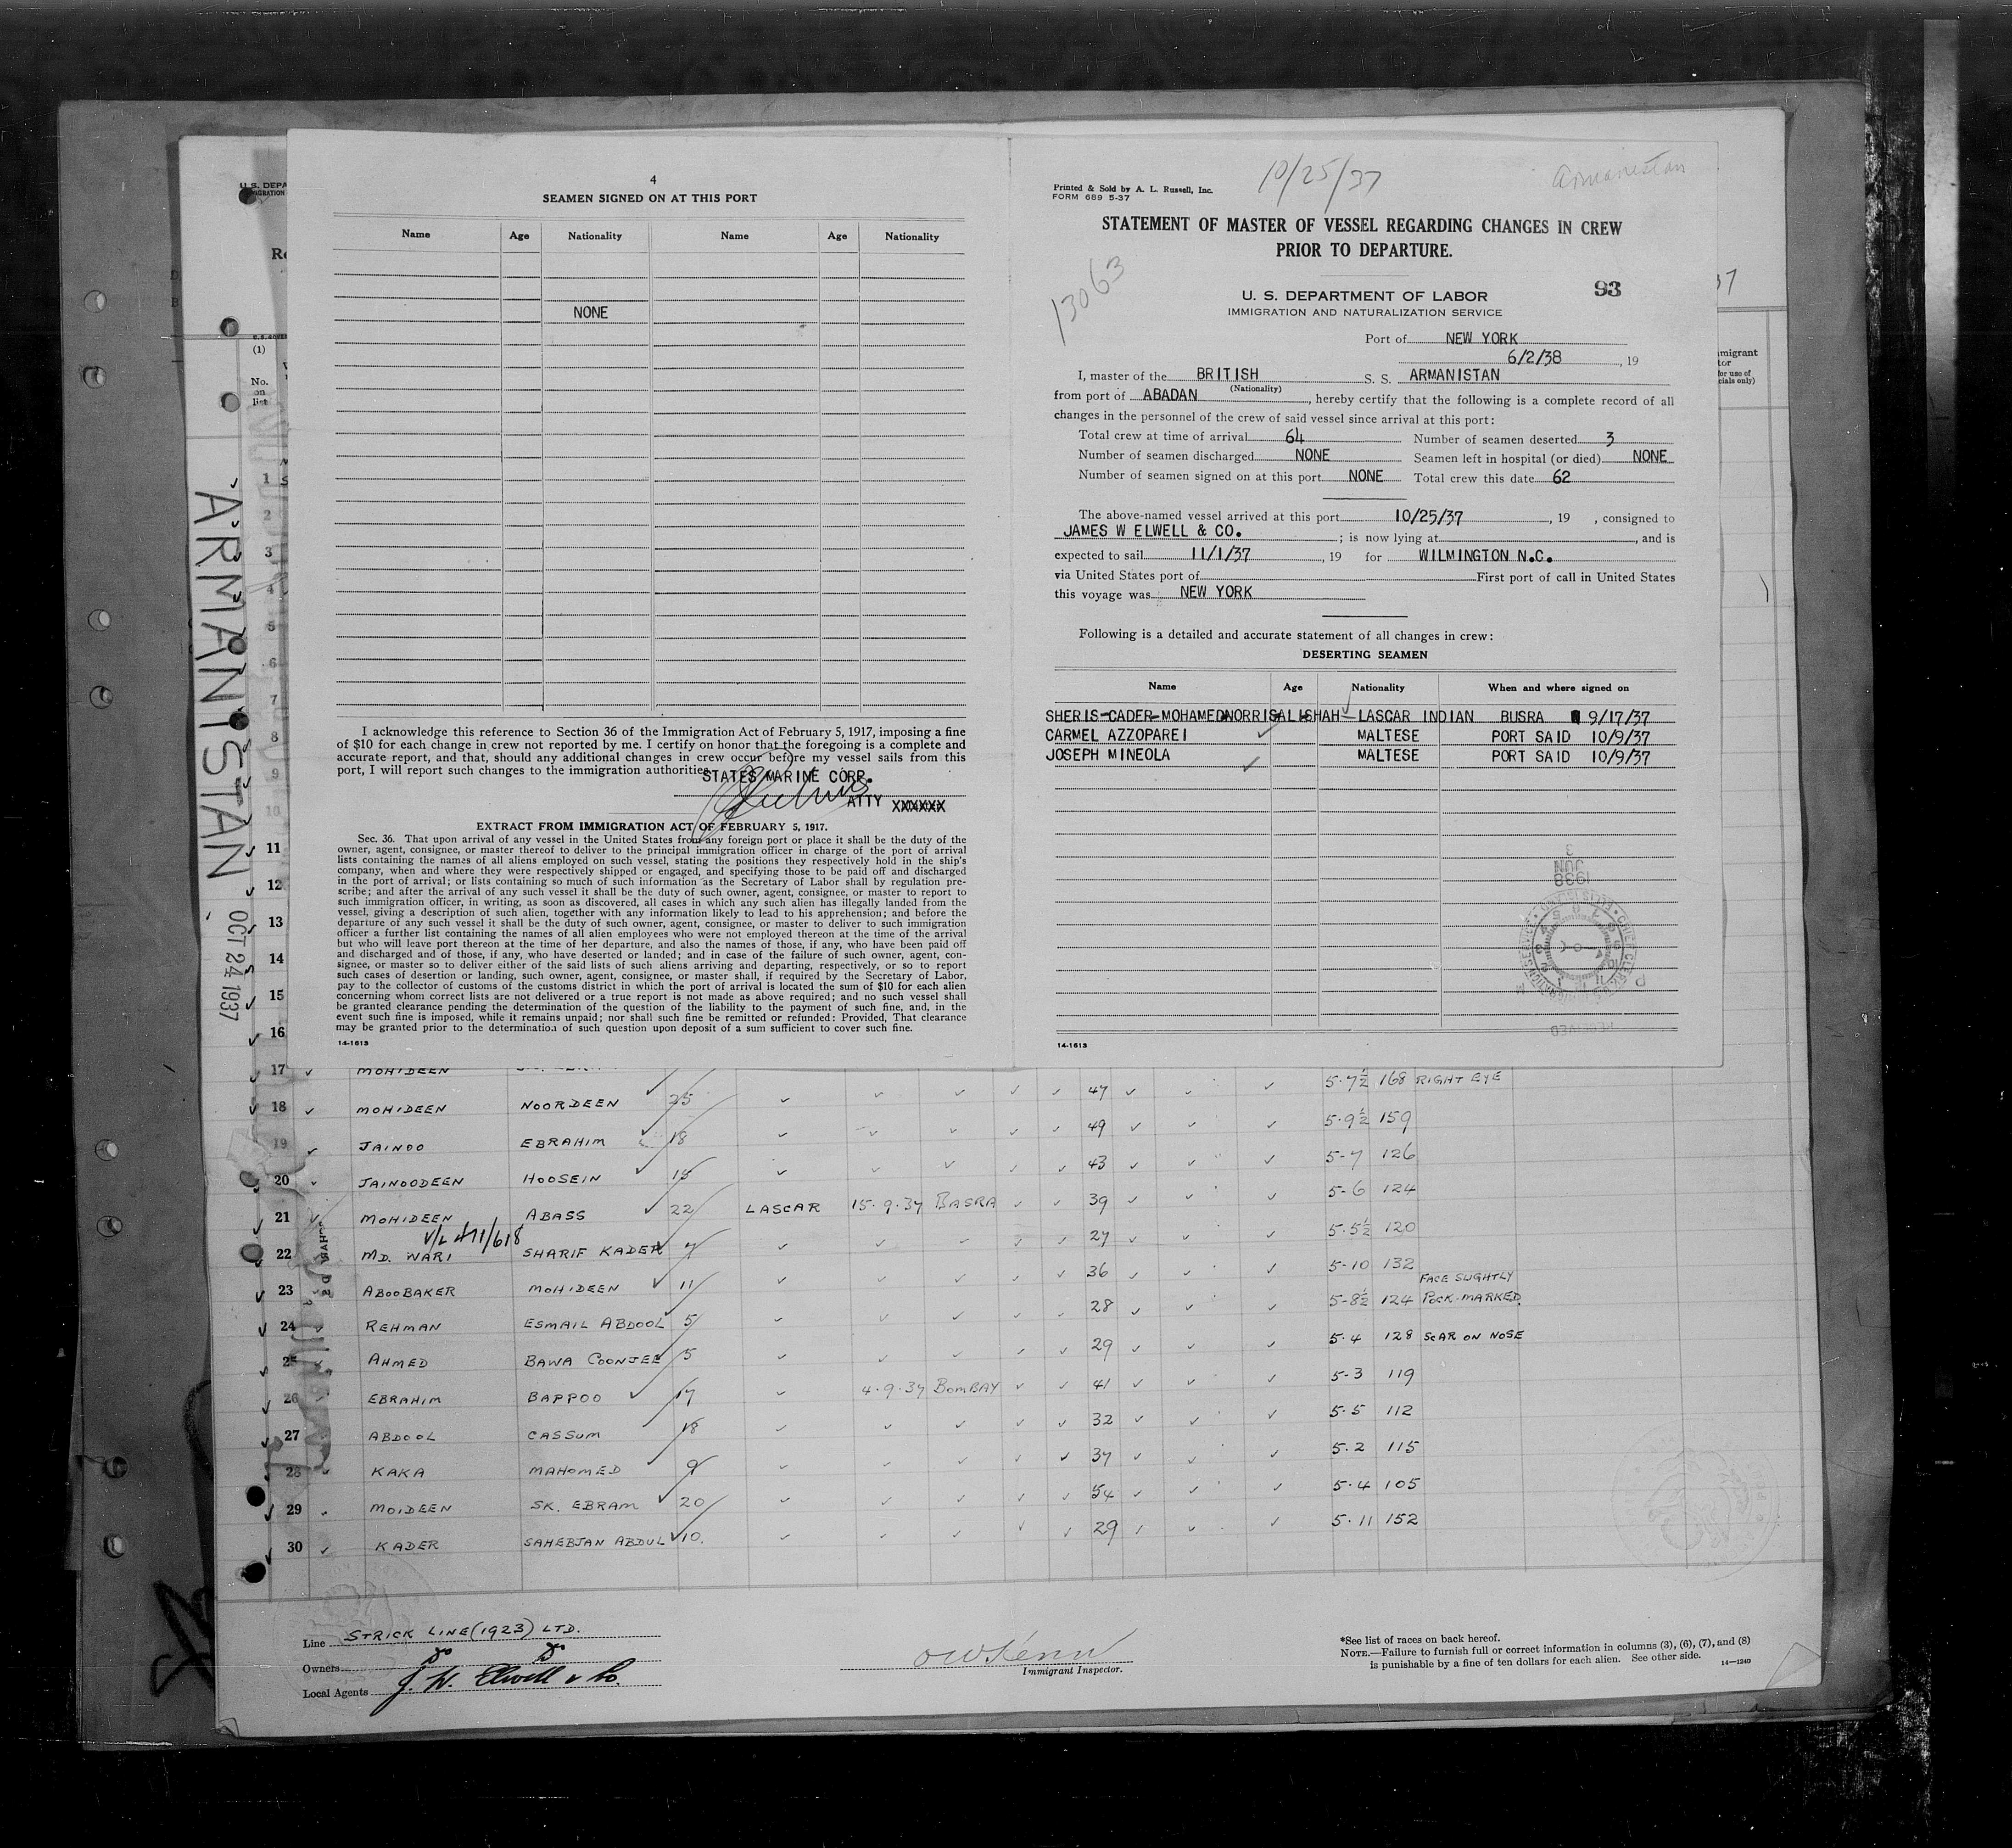 4
SEAMEN SIGNED ON AT THIS PORT
Name Age Nationality Name Age Nationality
NONE
I acknowledge this reference to Section 36 of the Immigration Act of February 5, 1917, imposing a fine
of $10 for each change in crew not reported by me. I certify on honor that the foregoing is a complete and
accurate report, and that, should any additional changes in crew occur before my vessel sails from this
port, I will report such changes to the immigration authorities.
STATES MARINE CORP.
ATTY XXXXXX
EXTRACT FROM IMMIGRATION ACT OF FEBRUARY 5, 1917.
Sec. 36. That upon arrival of any vessel in the United States from any foreign port or place it shall be the duty of the
owner, agent, consignee, or master thereof to deliver to the principal immigration officer in charge of the port of arrival
lists containing the names of all aliens employed on such vessel, stating the positions they respectively hold in the ship's
company, when and where they were respectively shipped or engaged, and specifying those to be paid off and discharged
in the port of arrival; or lists containing so much of such information as the Secretary of Labor shall by regulation pre-
scribe; and after the arrival of any such vessel it shall be the duty of such owner, agent, consignee, or master to report to
such immigration officer, in writing, as soon as discovered, all cases in which any such alien has illegally landed from the
vessel, giving a description of such alien, together with any information likely to lead to his apprehension; and before the
departure of any such vessel it shall be the duty of such owner, agent, consignee, or master to deliver to such immigration
officer a further list containing the names of all alien employees who were not employed thereon at the time of the arrival
but who will leave port thereon at the time of her departure, and also the names of those, if any, who have been paid off
and discharged and of those, if any, who have deserted or landed; and in case of the failure of such owner, agent, con-
signee, or master so to deliver either of the said lists of such aliens arriving and departing, respectively, or so to report
such cases of desertion or landing, such owner, agent, consignee, or master shall, if required by the Secretary of Labor,
pay to the collector of customs of the customs district in which the port of arrival is located the sum of $10 for each alien
concerning whom correct lists are not delivered or a true report is not made as above required; and no such vessel shall
be granted clearance pending the determination of the question of the liability to the payment of such fine, and, in the
event such fine is imposed, while it remains unpaid; nor shall such fine be remitted or refunded: Provided, That clearance
may be granted prior to the determination of such question upon deposit of a sum sufficient to cover such fine.
14-1613
10/25/37
Armanistan
Printed & Sold by A. L. Russell, Inc.
FORM 689 5-37
STATEMENT OF MASTER OF VESSEL REGARDING CHANGES IN CREW
PRIOR TO DEPARTURE.
13063
93
U. S. DEPARTMENT OF LABOR
IMMIGRATION AND NATURALIZATION SERVICE
Port of NEW YORK
6/2/38, 19
I, master of the BRITISH S. S. ARMANISTAN
(Nationality)
from port of ABADAN, hereby certify that the following is a complete record of all
changes in the personnel of the crew of said vessel since arrival at this port:
Total crew at time of arrival 64 Number of seamen deserted 3
Number of seamen discharged NONE Seamen left in hospital (or died) NONE
Number of seamen signed on at this port NONE Total crew this date 62
The above-named vessel arrived at this port 10/25/37, 19 , consigned to
JAMES W ELWELL & CO. ; is now lying at , and is
expected to sail 11/1/37, 19 for WILMINGTON N.C.
via United States port of First port of call in United States
this voyage was NEW YORK
Following is a detailed and accurate statement of all changes in crew:
DESERTING SEAMEN
Name Age Nationality When and where signed on
SHERIS-CADER-MOHAMED NORRISALISHAH-LASCAR INDIAN BUSRA 9/17/37
CARMEL AZZOPAREI MALTESE PORT SAID 10/9/37
JOSEPH MINEOLA MALTESE PORT SAID 10/9/37
1938
JUN
3
RECEIVED
14-1613
ARMANISTAN
OCT 24 1937
U. S. DEPA
(1)
No.
on
list
1
2
3
4
5
6
7
8
9
10
11
12
13
14
15
16
17 MOHIDEEN 47 5-7½ 168 RIGHT EYE
18 MOHIDEEN NOORDEEN 25 49 5-9½ 159
19 JAINOO EBRAHIM 18 43 5-7 126
20 JAINOODEEN HOOSEIN 15 39 5-6 124
21 MOHIDEEN ABASS 22 LASCAR 15.9.37 BASRA 27 5.5½ 120
V/L 471/618
22 MD. WARI SHARIF KADER 7 36 5-10 132
23 ABOOBAKER MOHIDEEN 11 28 5-8½ 124 FACE SLIGHTLY POCK-MARKED
24 REHMAN ESMAIL ABDOOL 5 29 5.4 128 SCAR ON NOSE
25 AHMED BAWA COONJEE 5 41 5-3 119
26 EBRAHIM BAPPOO 17 4.9.37 BOMBAY 32 5.5 112
27 ABDOOL CASSUM 18 37 5.2 115
28 KAKA MAHOMED 9 54 5.4 105
29 MOIDEEN SK. EBRAM 20 29 5.11 152
30 KADER SAHEBJAN ABDUL 10.
Line STRICK LINE (1923) LTD.
Owners Do Do
Local Agents J. W. Elwell & Co.
Immigrant Inspector.
*See list of races on back hereof.
NOTE.—Failure to furnish full or correct information in columns (3), (6), (7), and (8)
is punishable by a fine of ten dollars for each alien. See other side. 14—1240